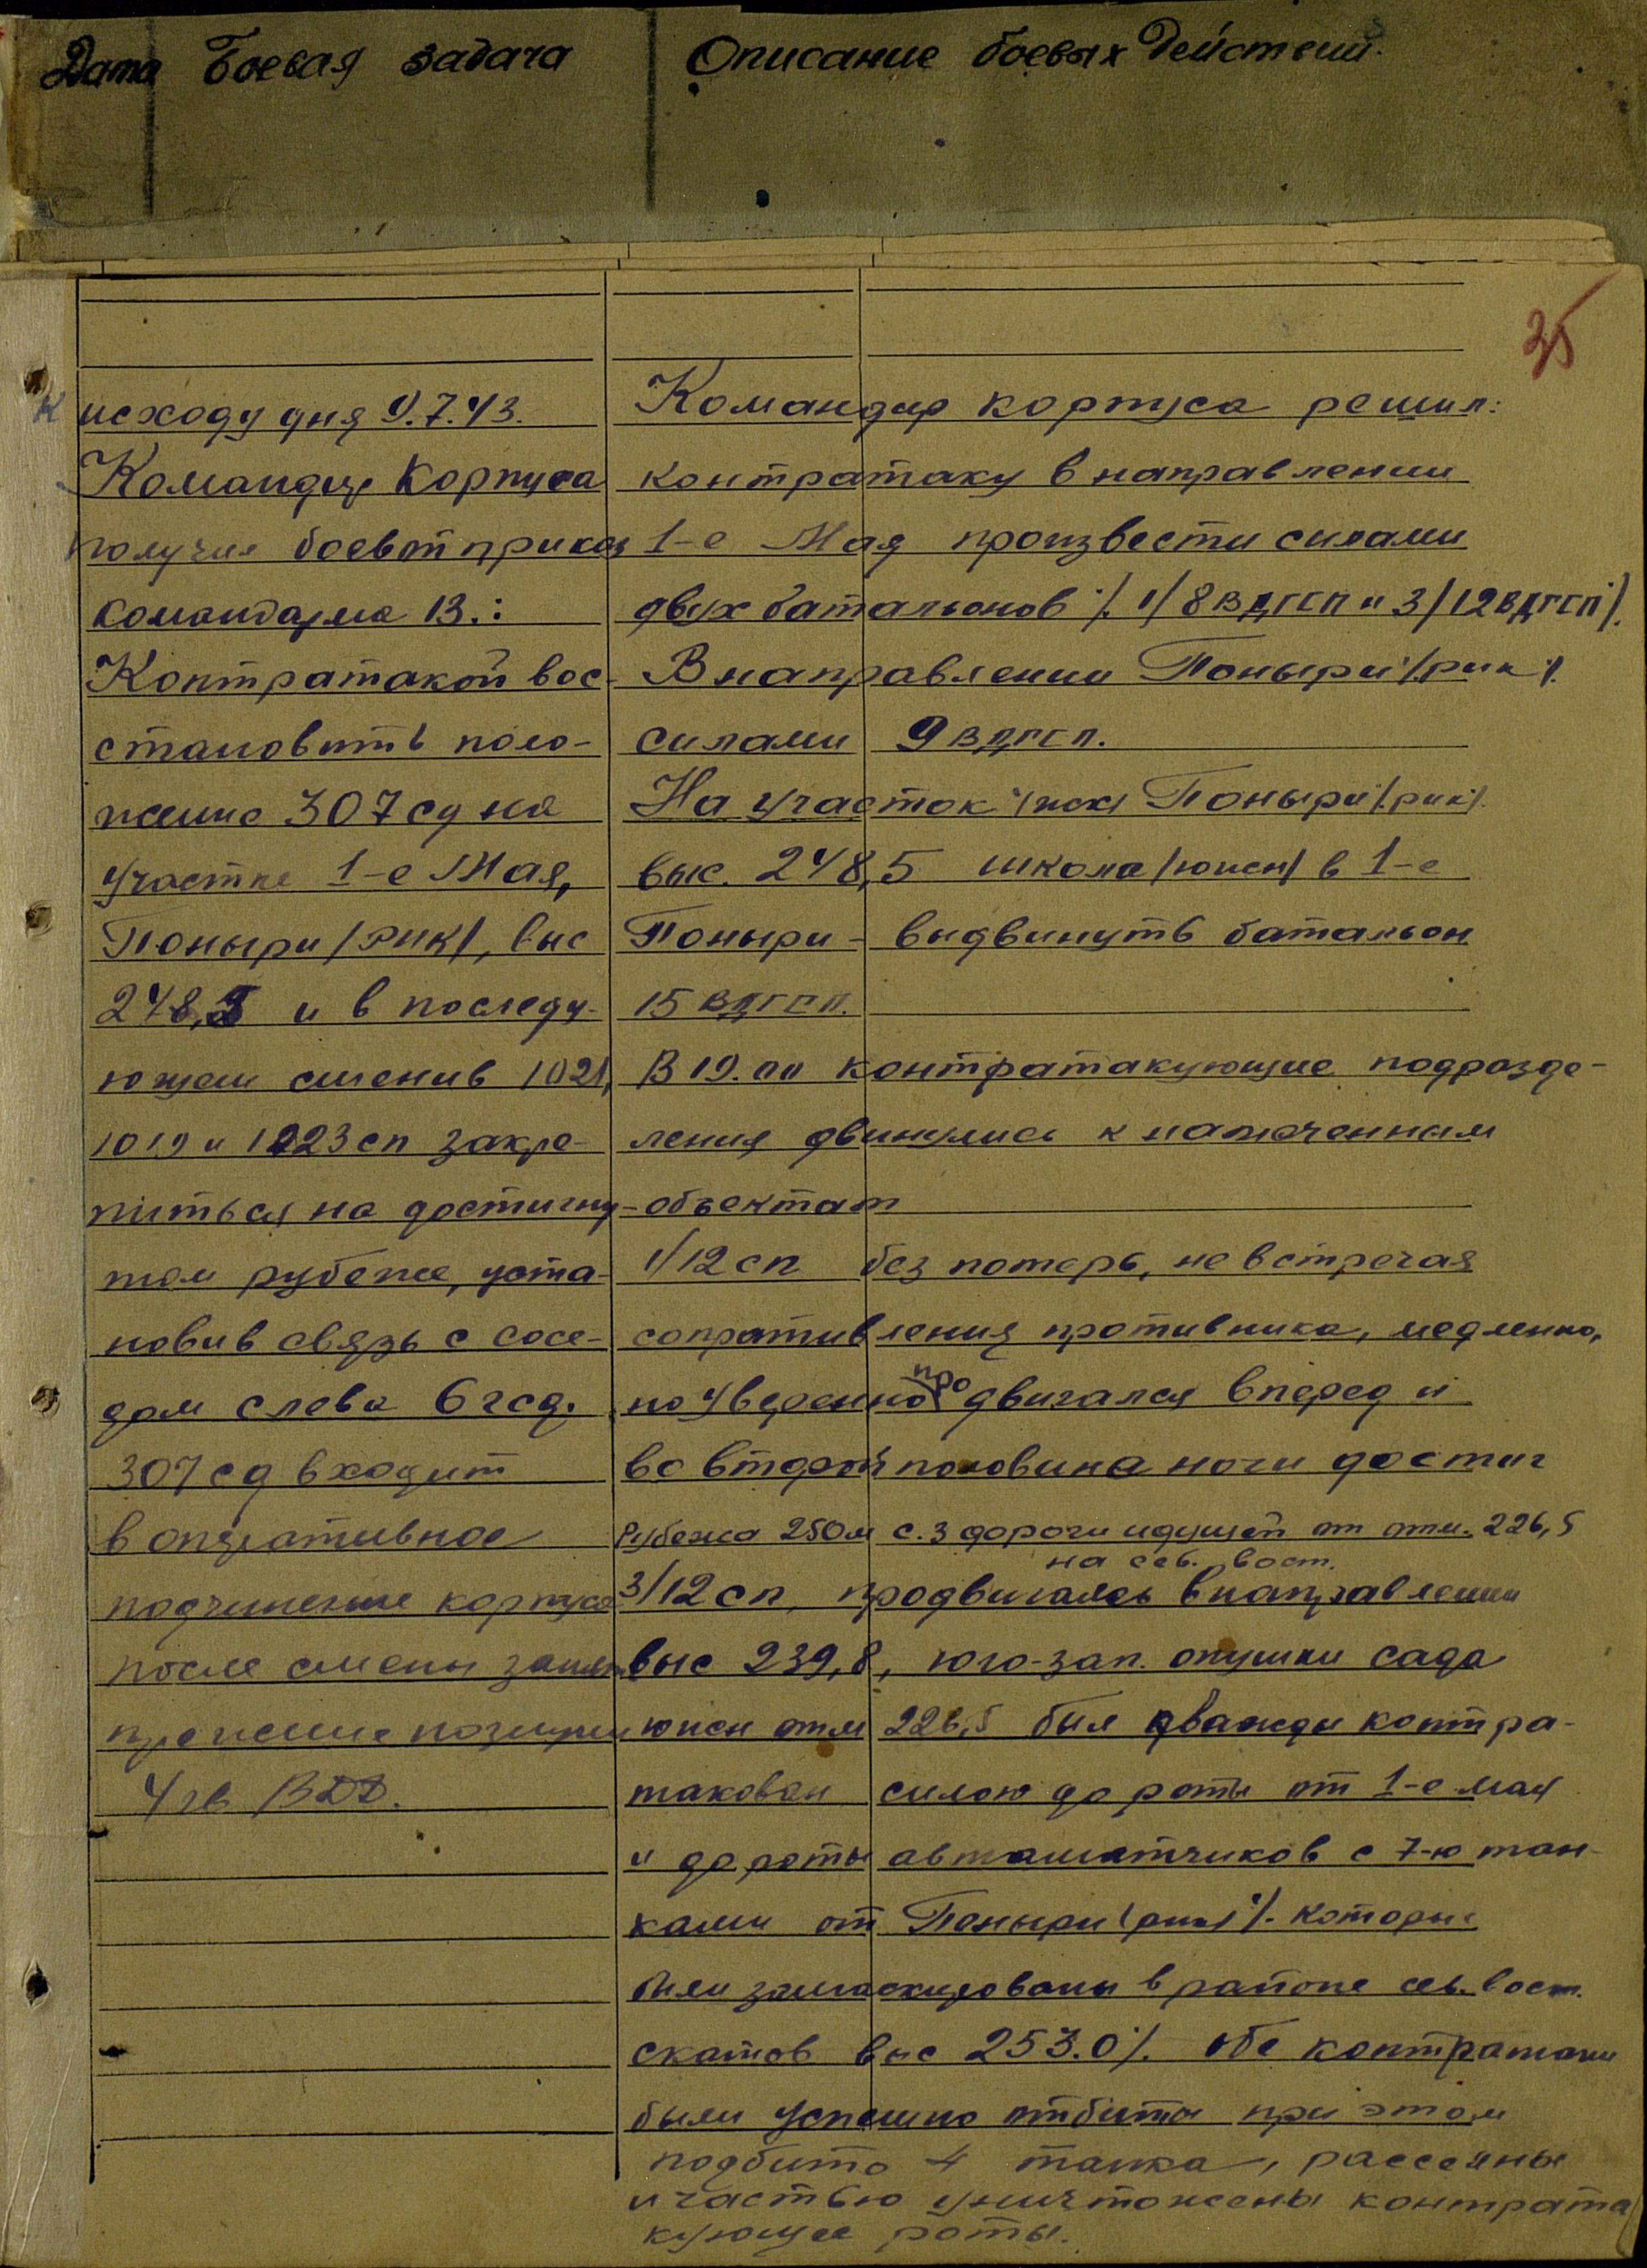 Дата Боевая задача Описание боевых действий.
35
К исходу дня 9.7.43.
Командир корпуса
получил боевой приказ
командарма 13.:
Контратакой вос-
становить поло-
жение 307 сд на
участке 1-е Мая,
Поныри /рик/, выс
248,5 и в последу-
ющем сменив 1021,
1019 и 1023 сп закре-
питься на достигну-
том рубеже, уста-
новив связь с сосе-
дом слева 6 гсд.
307 сд входит
в оперативное
подчинение корпуса
после смены
прежние позиции
4 гв ВДД.
Командир корпуса решил:
контратаку в направлении
1-е Мая произвести силами
двух батальонов /. 1/8 вдгсп и 3/12 вдгсп /.
В направлении Поныри /.рик/.
силами 9 вдгсп.
На участок /иск/ Поныри /.рик/.
выс. 248,5 школа /южн/ в 1-е
Поныри - выдвинуть батальон
15 вдгсп.
В 19.00 контратакующие подразде-
ления двинулись к намеченным
объектам
1/12 сп без потерь, не встречая
сопротивления противника, медленно,
но уверенно продвигался вперед и
во второй половина ночи достиг
Рубежа 250м с.з дороги идущей от отм. 226,5
на сев. вост.
3/12 сп, продвигаясь в направлении
выс 239,8, юго-зап. опушки сада
южн отм 226,5 был дважды контра-
такован силою до роты от 1-е мая
и до роты автоматчиков с 7-ю тан-
ками от Поныри /рик/. которые
были замаскированы в районе сев. вост.
скатов выс 253.0 /. обе контратаки
были успешно отбиты при этом
подбито 4 танка, рассеяны
и частью уничтожены контрата
кующее роты.